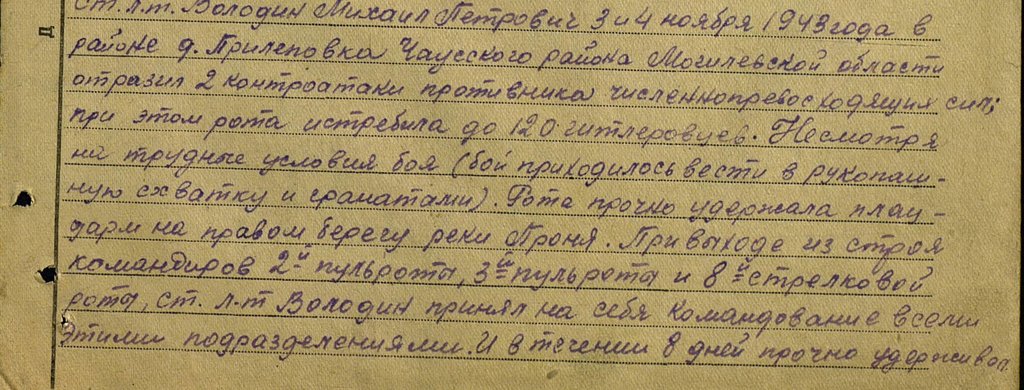 Д
ст. л.т. Володин Михаил Петрович 3 и 4 ноября 1943 года в
районе д. Прилеповка Чаусского района Могилевской области
отразил 2 контроатаки противника численнопревосходящих сил;
при этом рота истребила до 120 гитлеровцев. Несмотря
на трудные условия боя (бой приходилось вести в рукопаш-
ную схватку и граматами). Рота прочно удержала плац-
дарм на правом берегу реки Проня. При выходе из строя
командиров 2й пульроты, 3й пульроты и 8й стрелковой
роты, ст. л-т Володин принял на себя командование всеми
этими подразделениями. И в течении 8 дней прочно удерживал